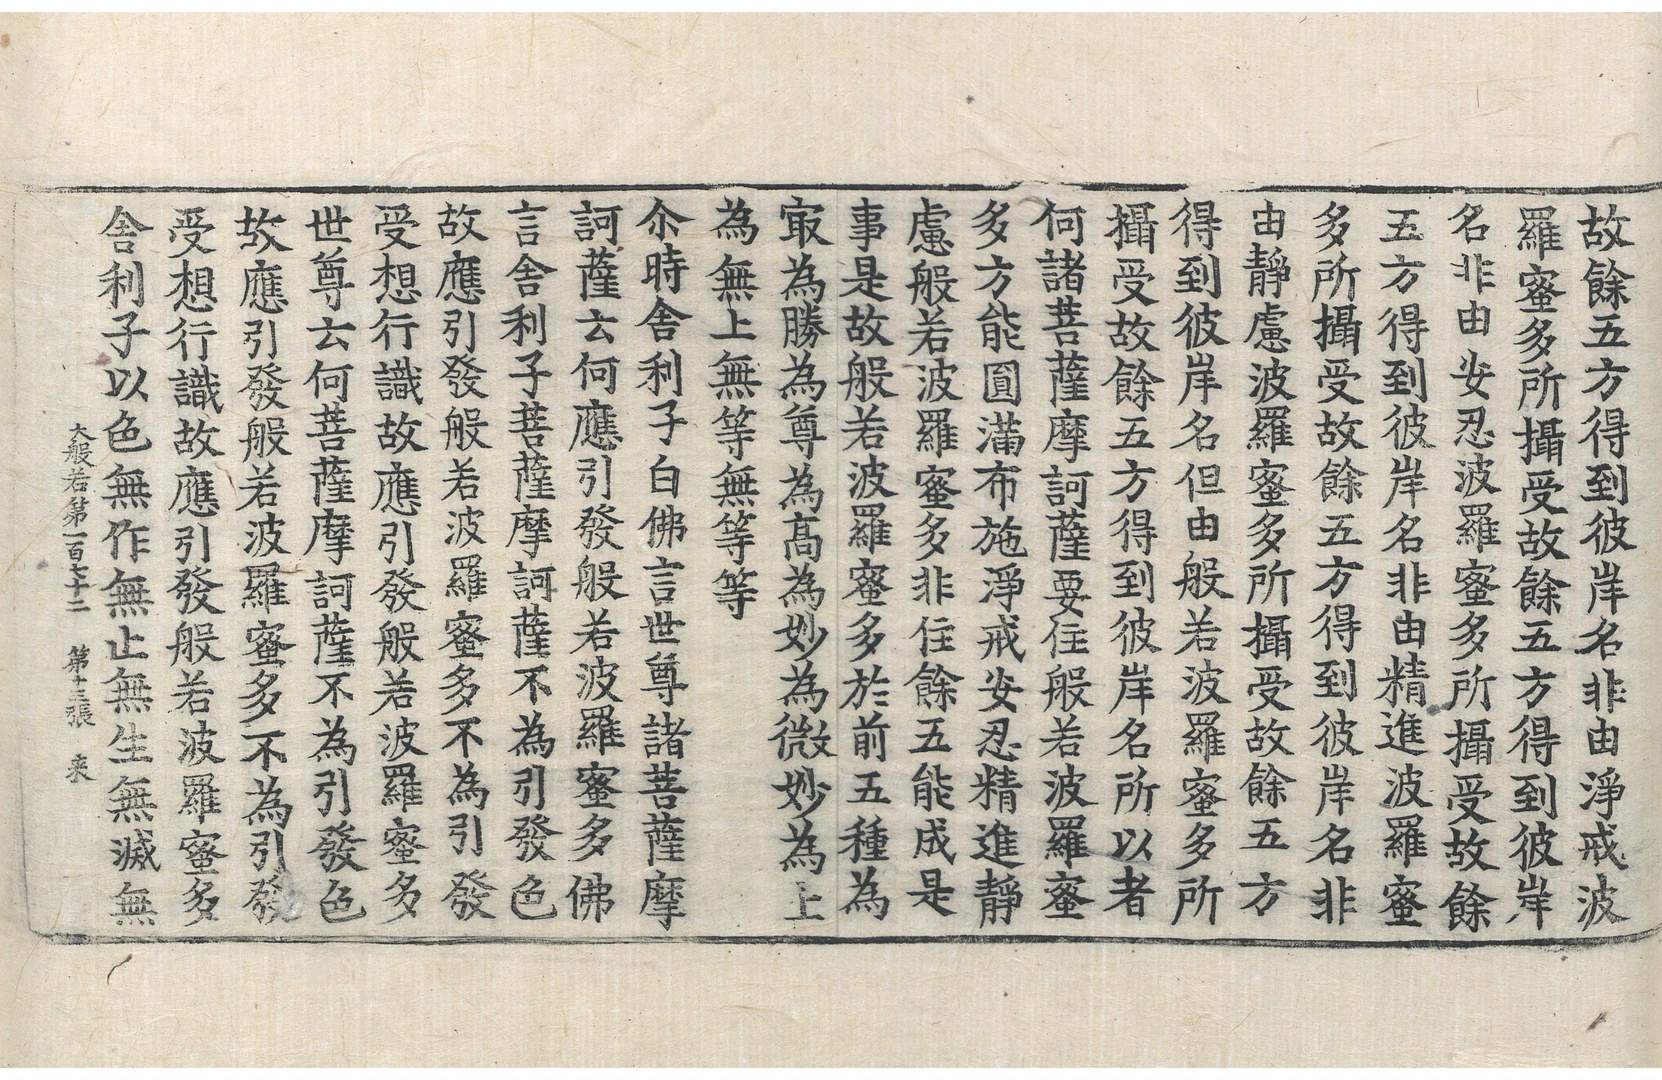 故餘五方得到彼岸名非由淨戒波
羅蜜多所攝受故餘五方得到彼岸
名非由安忍波羅蜜多所攝受故餘
五方得到彼岸名非由精進波羅蜜
多所攝受故餘五方得到彼岸名非
由靜慮波羅蜜多所攝受故餘五方
得到彼岸名但由般若波羅蜜多所
攝受故餘五方得到彼岸名所以者
何諸菩薩摩訶薩要住般若波羅蜜
多方能圓滿布施淨戒安忍精進靜
慮般若波羅蜜多非住餘五能成是
事是故般若波羅蜜多於前五種為
㝡為勝為尊為高為妙為微妙為上
為無上無等無等等
尒時舍利子白佛言世尊諸菩薩摩
訶薩云何應引發般若波羅蜜多佛
言舍利子菩薩摩訶薩不為引發色
故應引發般若波羅蜜多不為引發
受想行識故應引發般若波羅蜜多
世尊云何菩薩摩訶薩不為引發色
故應引發般若波羅蜜多不為引發
受想行識故應引發般若波羅蜜多
舍利子以色無作無止無生無滅無
大般若第一百七十二 第十三張 来